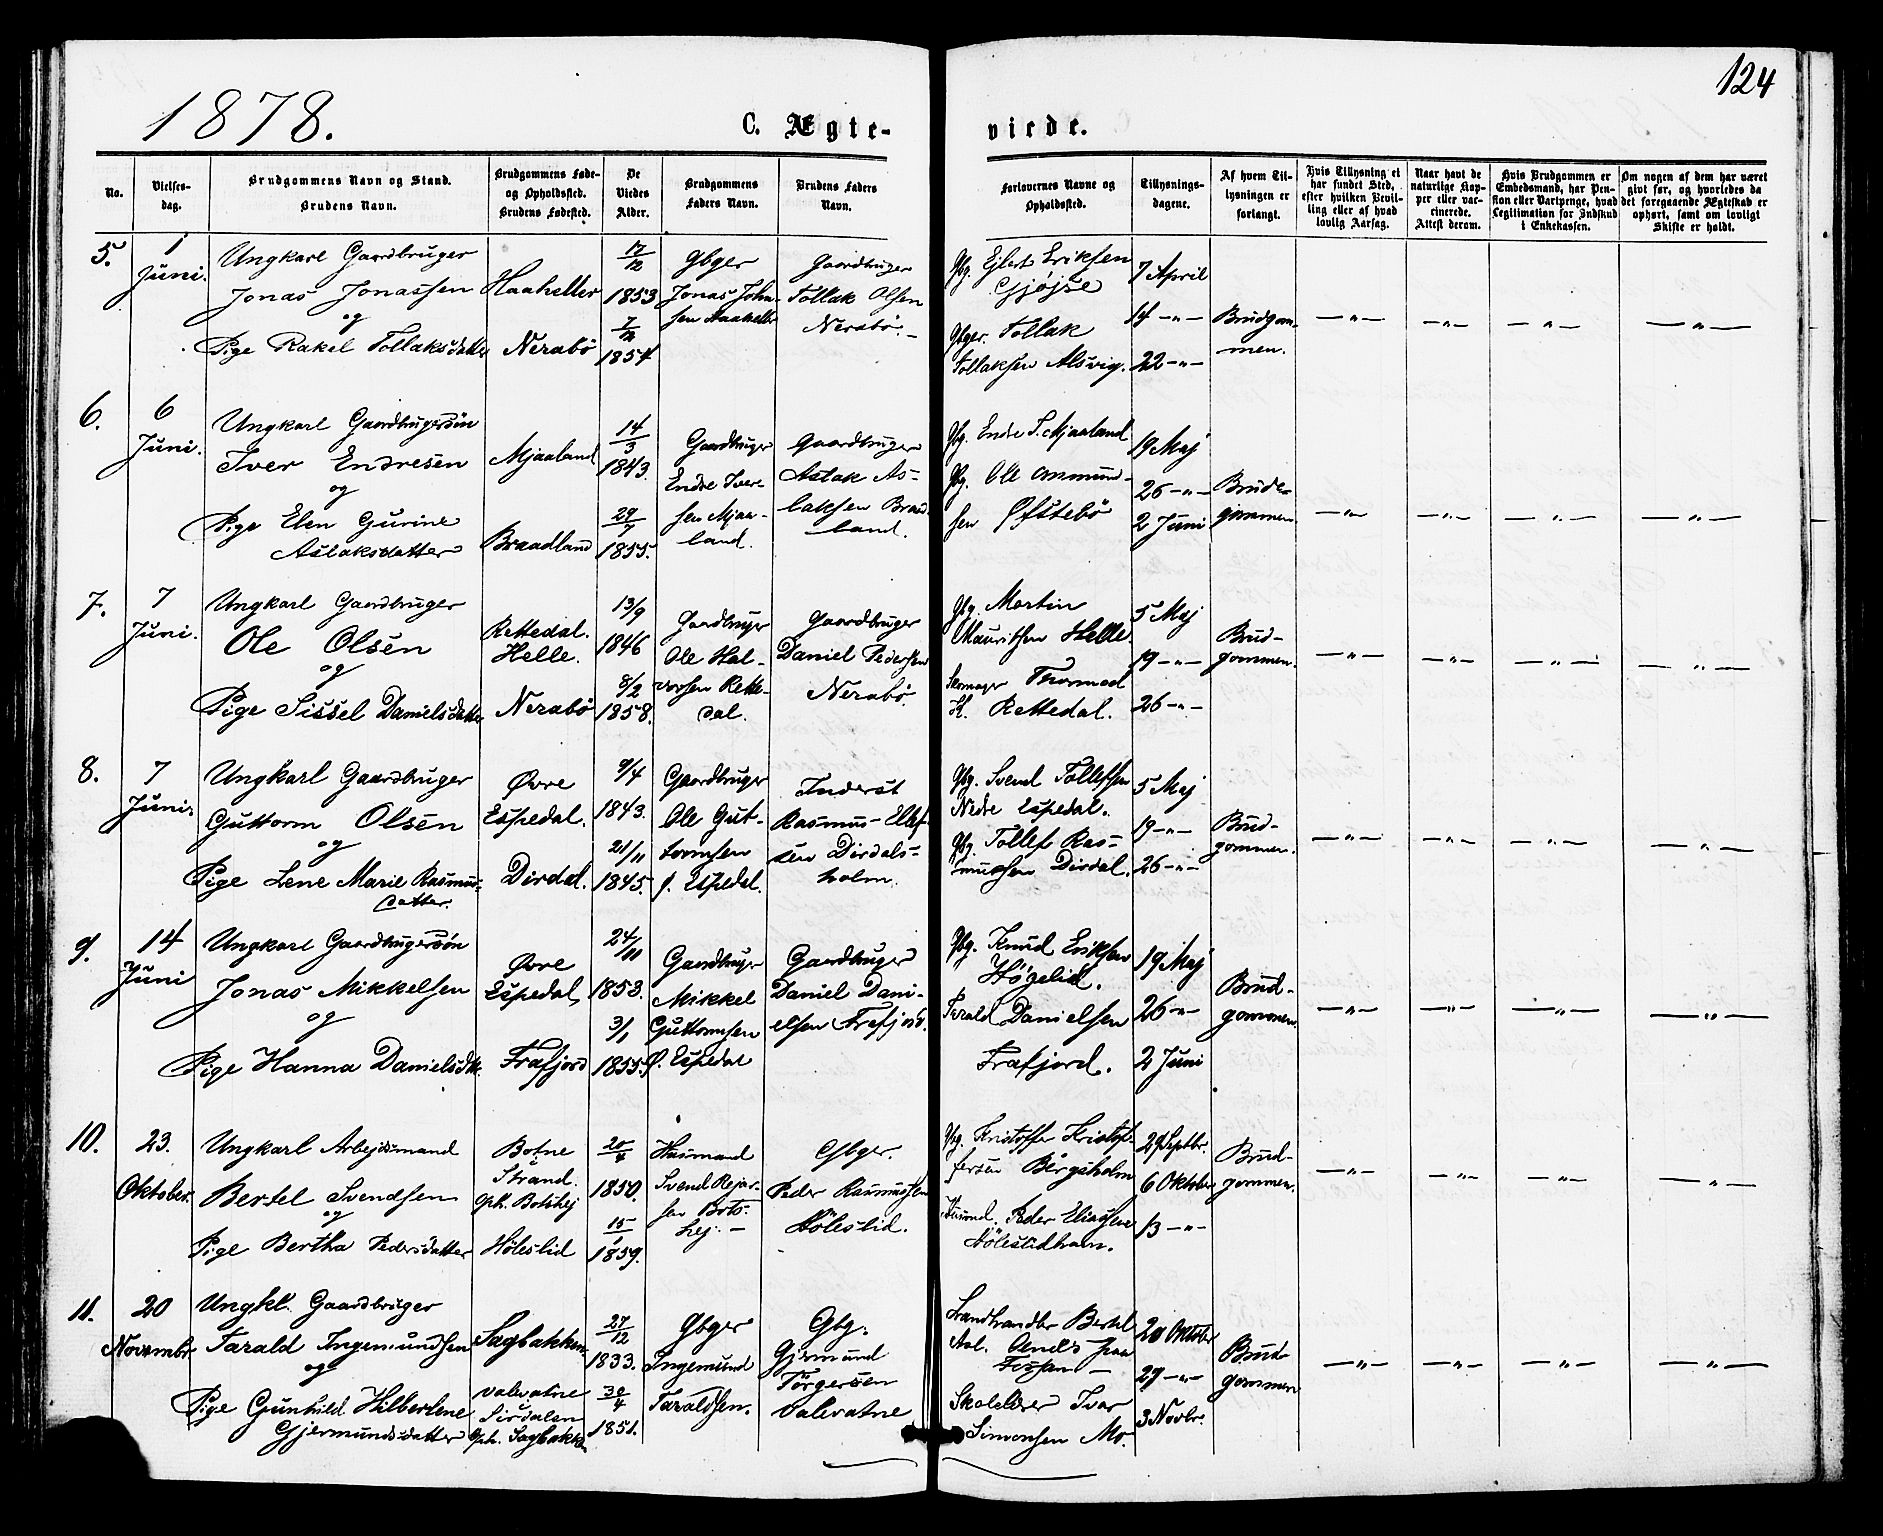 1878.
C. Ægte-
viede.
124
No.
Vielses-
dag.
Brudgommens Navn og Stand.
Brudens Navn.
Brudgommens Føde-
og Opholdssted.
Brudens Fødested.
De
Viedes
Alder.
Brudgommens
Faders Navn.
Brudens Faders
Navn.
Forlovernes Navne og
Opholdssted.
Tillysnings-
dagene.
Af hvem Til-
lysningen er
forlangt.
Hvis Tillysning ei
har fundet Sted,
efter hvilken Bevil-
ling eller af hvad
lovlig Aarsag.
Naar havt de
naturlige Kop-
per eller vac-
cinerede.
Attest derom.
Hvis Brudgommen er
Embedsmand, har Pen-
sion eller Vartpenge, hvad
Legitimation for Indskud
i Enkekassen.
Om nogen af dem har været
givt før, og hvorledes da
det foregaaende Ægteskab er
ophørt, samt om lovligt
Skifte er holdt.
5.
1
Juni.
Ungkarl Gaardbruger
Jonas Jonassen
og
Pige Rakel Tollaksdatter
Haaheller
Nerabö
17/12
1853
7/12
1854
Gbger
Jonas Joha-
sen Haaheller
Gaardbruger
Tollak Olsen
Nerabö.-
Gbg. Ejlert Eriksen
Gjøjse
Gbger. Tollak
Tollaksen Alsvig.
7 April
14 -"-
22 -"-
Brudgom-
men.
-"- -"- -"- -"-
6.
6
Juni.
Ungkarl Gaardbrugersön
Iver Endresen
og
Pige Elen Gurine
Aslaksdatter
Mjaaland
Braadland
14/3
1843.
29/7
1855.
Gaardbruger
Endre Iver-
sen Mjaa-
land.
Gaardbruger
Aslak As-
laksen Braad
land.
Gbg. Endre S. Mjaaland
Gbg. Ole Ommund-
sen Øfstebö
19 Maj
26 -"-
2 Juni
Brude-
gommen.
-"- -"- -"- -"-
7.
7
Juni.
Ungkarl Gaardbruger
Ole Olsen
og
Pige Sissel Danielsdatter
Rettedal.
Helle.
Nerabö
13/9
1846
8/2
1858.
Gaardbruger
Ole Hal-
vorsen Rette-
dal.
Gaardbruger
Daniel Pedersen
Nerabö.
Gbg. Martin
Mauritsen Helle
Skomager Thormod
H. Rettedal.
5 Maj
19 -"-
26 -"-
Brud-
gommen.
-"- -"- -"- -"-
8.
7
Juni.
Ungkarl Gaardbruger
Guttorm Olsen
og
Pige Lene Marie Rasmus-
datter.
Øvre
Espedal.
Dirdal.
9/4
1843.
21/11
1845.
Gaardbruger
Ole Gut-
tormsen
Espedal.
Inderst
Rasmus Ellef-
sen Dirdals-
holm.
Gbg. Svend Tollefsen
Nedre Espedal.
Gbg. Tollef Ras-
mussen Dirdal.
5 Maj
19 -"-
26 -"-
Brud-
gommen.
-"- -"- -"- -"-
9.
14
Juni
Ungkarl Gaardbrugersön
Jonas Mikkelsen
og
Pige Hanna Danielsdtr.
Øvre
Espedal
Frafjord
24/11
1853.
3/1
1855.
Gaardbruger
Mikkel
Guttormsen
Ø. Espedal
Gaardbruger
Daniel Dani-
elsen Frafjord.
Gbg. Knud Eriksen
Høgelid.
Tarald Danielsen
Frafjord.
19 Maj
26 -"-
2 Juni
Brud-
gommen.
-"- -"- -"- -"-
10.
23.
Oktober.
Ungkarl Arbejdsmand
Bertel Svendsen
og
Pige Bertha Pedersdatter
Botne
Strand.
Oph. Botshej
Höleslid
20/4
1850.
15/1
1859.
Husmand
Svend Rejar-
sen Bots-
hej. -
Gbger.
Peder Rasmussen
Höleslid.
Gbg. Kristoffer Kristof-
fersen Bergsholm
Husmd. Peder Eliassen
Höleslidhavn.
29 Septbr.
6 Oktober
13 -"-
Brud-
gommen.
-"- -"- -"- -"-
11.
20
Novembr.
Ungkl. Gaardbruger
Tarald Ingemundsen
og
Pige Gunhild Hilberlene
Gjermundsdatter
Sagbakken
Valevatne
Sirdalen
Oph. Sagbakken
27/12
1833.
30/4
1851.
Gbger
Ingemund
Taraldsen.
Gbg.
Gjermund
Törgersen
Valevatne
Bertel
Skolelærer Ivar
Simonsen Mo.
20 Oktober
29 -"-
3 Novbr.
Brud-
gommen
-"- -"- -"- -"-